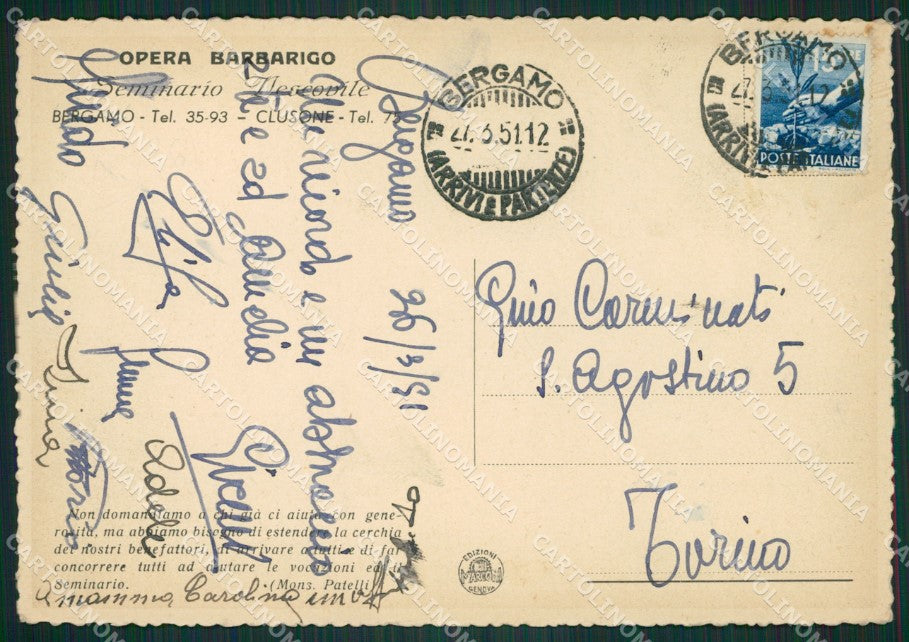 OPERA BARBARIGO
Seminario Vescovile
BERGAMO - Tel. 35-93 - CLUSONE - Tel. 75
Bergamo 26/3/51
un abbraccio
a te ed amelia
Giulia
Irma
Adele
mamma Carolina
Non domandiamo a chi già ci aiuta con gene-
rosità, ma abbiamo bisogno di estendere la cerchia
dei nostri benefattori, di arrivare a tutti e di far
concorrere tutti ad aiutare le vocazioni ed il
Seminario. (Mons. Patelli)
BERGAMO
27.3.51.12
(ARRIVI E PARTENZE)
BERGAMO
27.3.51.12
(ARRIVI E PARTENZE)
POSTE ITALIANE
Gino Carminati
S. Agostino 5
Torino
EDIZIONI
MARCONI
GENOVA
CARTOLINOMANIA